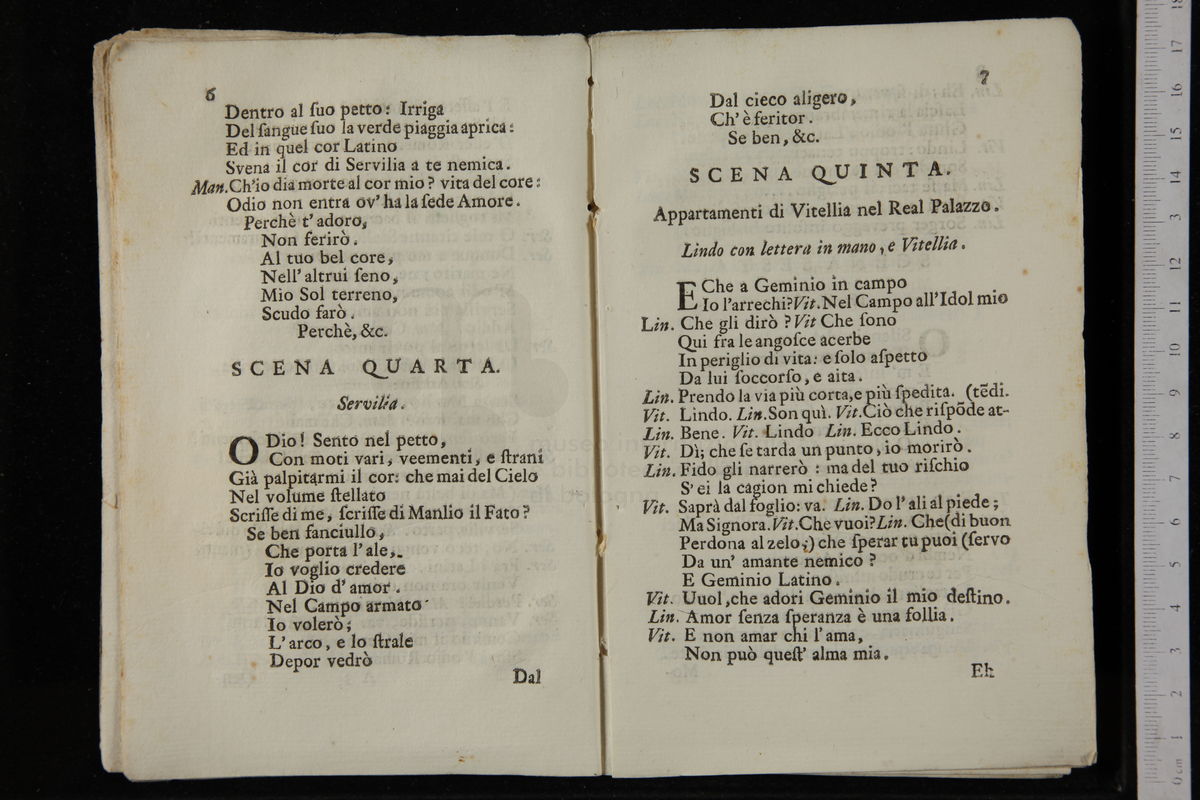 6
Dentro al ſuo petto: Irriga
Del ſangue ſuo la verde piaggia aprica:
Ed in quel cor Latino
Svena il cor di Servilia a te nemica.
Man. Ch'io dia morte al cor mio? vita del core:
Odio non entra ov' ha la ſede Amore.
Perchè t' adoro,
Non ferirò.
Al tuo bel core,
Nell' altrui ſeno,
Mio Sol terreno,
Scudo farò.
Perchè, &c.
SCENA QUARTA.
Servilia.
O Dio! Sento nel petto,
Con moti vari, veementi, e ſtrani
Già palpitarmi il cor: che mai del Cielo
Nel volume ſtellato
Scriſſe di me, ſcriſſe di Manlio il Fato?
Se ben fanciullo,
Che porta l' ale,
Io voglio credere
Al Dio d' amor.
Nel Campo armato
Io volerò;
L' arco, e lo ſtrale
Depor vedrò
Dal
7
Dal cieco aligero,
Ch' è feritor.
Se ben, &c.
SCENA QUINTA.
Appartamenti di Vitellia nel Real Palazzo.
Lindo con lettera in mano, e Vitellia.
E Che a Geminio in campo
Io l'arrechi? Vit. Nel Campo all'Idol mio
Lin. Che gli dirò? Vit Che ſono
Qui fra le angoſce acerbe
In periglio di vita: e ſolo aſpetto
Da lui ſoccorſo, e aita.
Lin. Prendo la via più corta, e più ſpedita. (tēdi.
Vit. Lindo. Lin. Son quì. Vit. Ciò che riſpōde at-
Lin. Bene. Vit. Lindo Lin. Ecco Lindo.
Vit. Dì; che ſe tarda un punto, io morirò.
Lin. Fido gli narrerò: ma del tuo riſchio
S' ei la cagion mi chiede?
Vit. Saprà dal foglio: va. Lin. Do l' ali al piede;
Ma Signora. Vit. Che vuoi? Lin. Che (di buon
Perdona al zelo;) che ſperar tu puoi (ſervo
Da un' amante nemico?
E Geminio Latino.
Vit. Uuol, che adori Geminio il mio deſtino.
Lin. Amor ſenza ſperanza è una follia.
Vit. E non amar chi l' ama,
Non può queſt' alma mia.
Eh